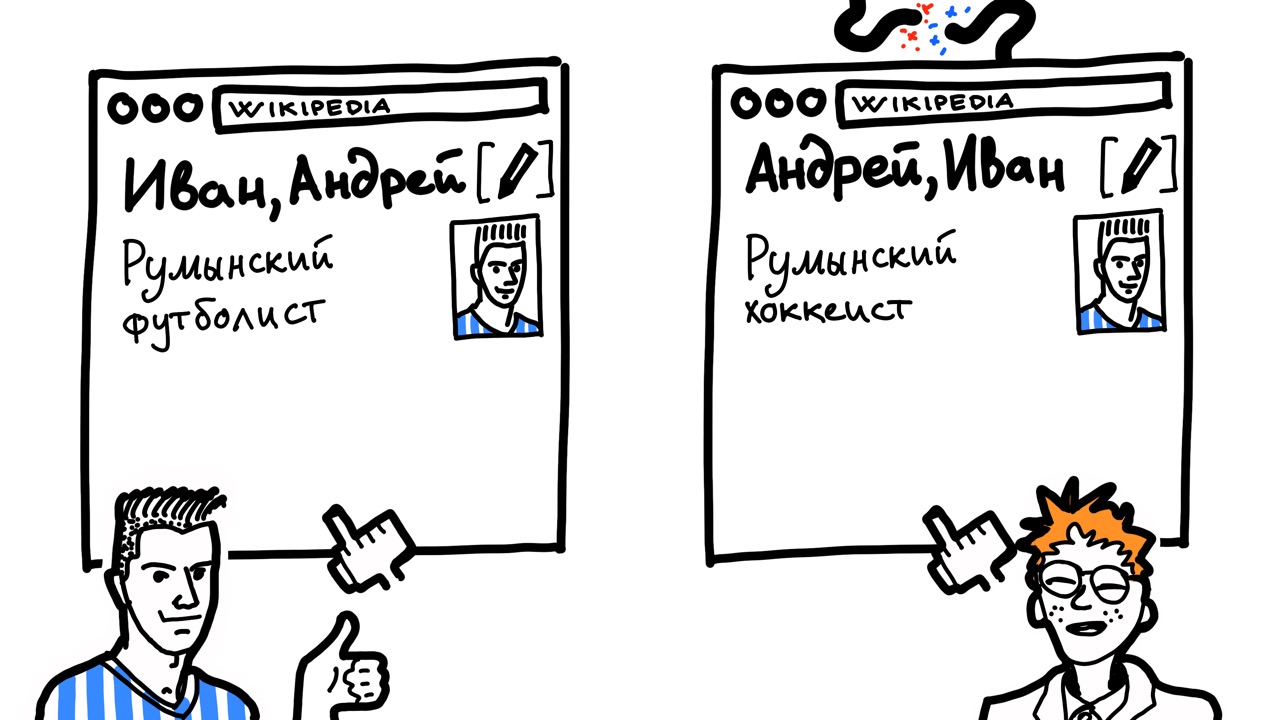 WIKIPEDIA
Иван, Андрей
Румынский
футболист
WIKIPEDIA
Андрей, Иван
Румынский
хоккеист